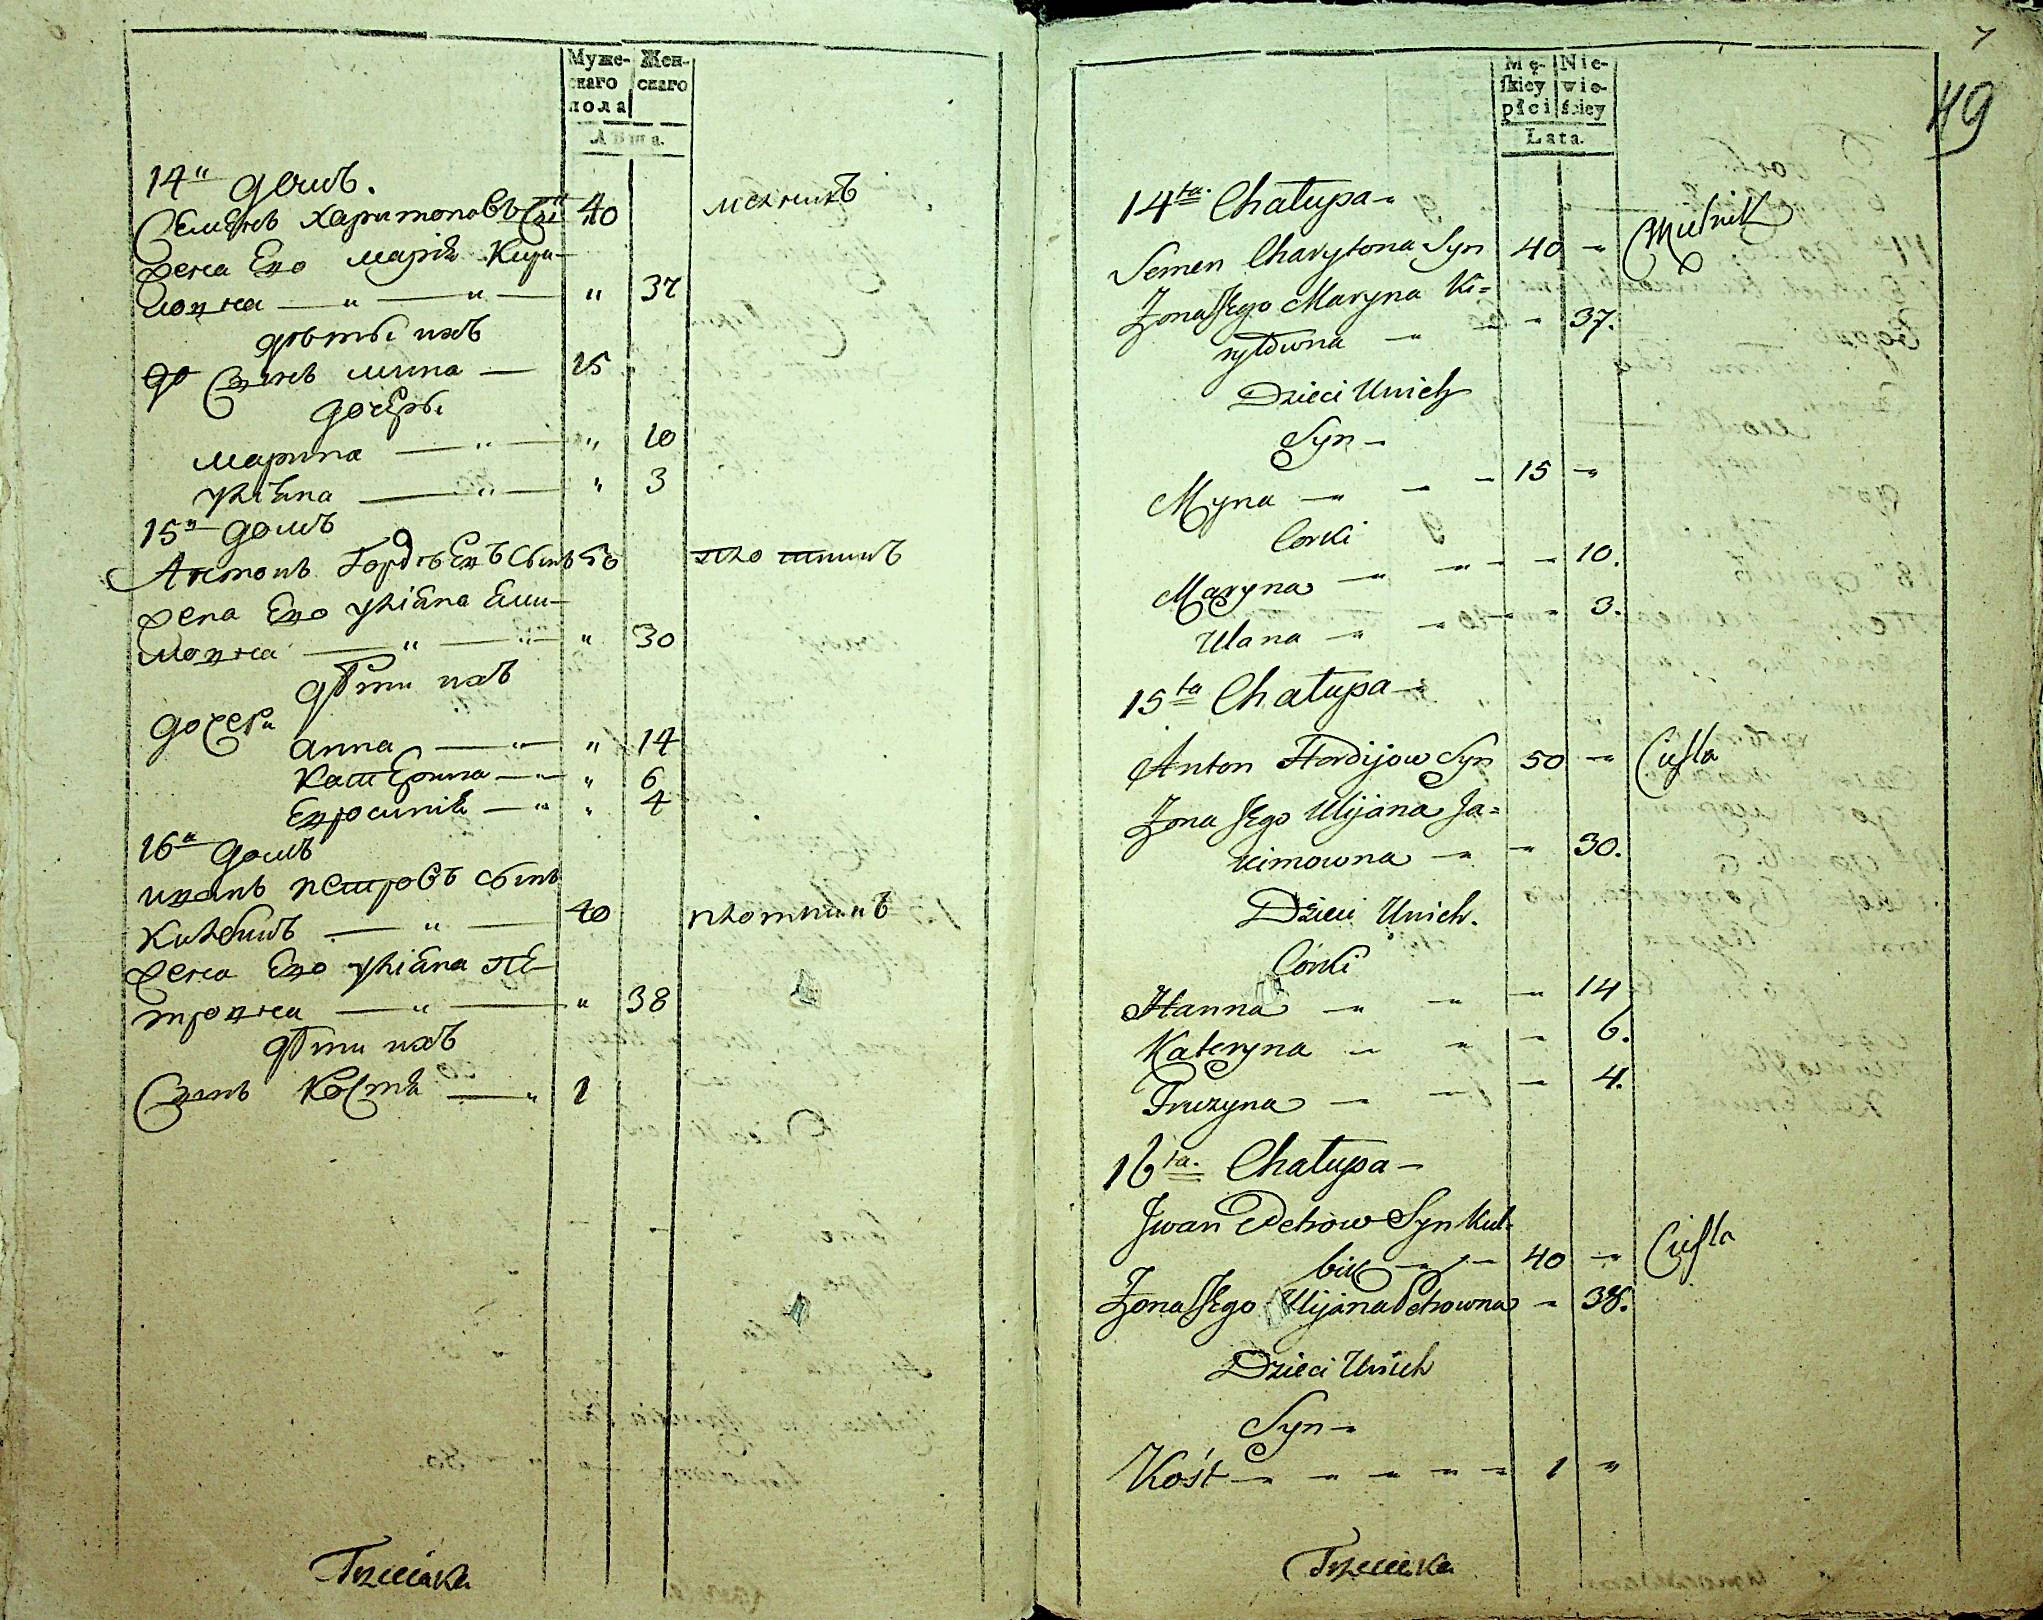 Муже-
скаго
пола
Жен-
скаго
Лѣта.
14й домъ.
Семенъ Харитоновъ Сынъ 40 мелникъ
Жена Его марія Кири-
ловна — " — " — " 37
дѣты ихъ
Сынъ мина — 15
дочеры
марина — " — " 10
улiяна — " — " 3
15й домъ
Антонъ Гордѣевъ Сынъ 50 плотникъ
жена Его улiяна Еки-
мовна — " — " — " 30
дѣти ихъ
дочери анна — " — " 14
Катерина — " — " 6
Евросинiя — " " 4
16й домъ
иванъ петровъ сынъ
Килбикъ — " — 40 плотникъ
жена Его улiяна пе-
тровна — " — " 38
дѣти ихъ
Сынъ Костя — " 1
Trzeciaka
7
49
Mę-
skiey
płci
Nie-
wie-
ściey
Lata.
14ta Chałupa -
Semen Charytona Syn 40 - Mielnik
Żona Jego Maryna Ki=
ryłowna - - 37.
Dzieci Unich
Syn -
Myna - - - 15 -
Corki
Maryna - - - - 10.
Ulana - - - - 3.
15ta Chałupa -
Anton Hordijow Syn 50 - Cieśla
Żona Jego Ulijana Ja=
kimowna - - 30.
Dzieci Unich.
Córki
Hanna - - - 14
Kateryna - - - 6.
Fruzyna - - - 4.
16ta. Chałupa -
Jwan Petrow Syn Kul-
bik - - - 40 - Cieśla
Żona Jego Ulijana Petrowna - 38.
Dzieci Unich
Syn -
Kość - - - - - 1 -
Trzeciaka